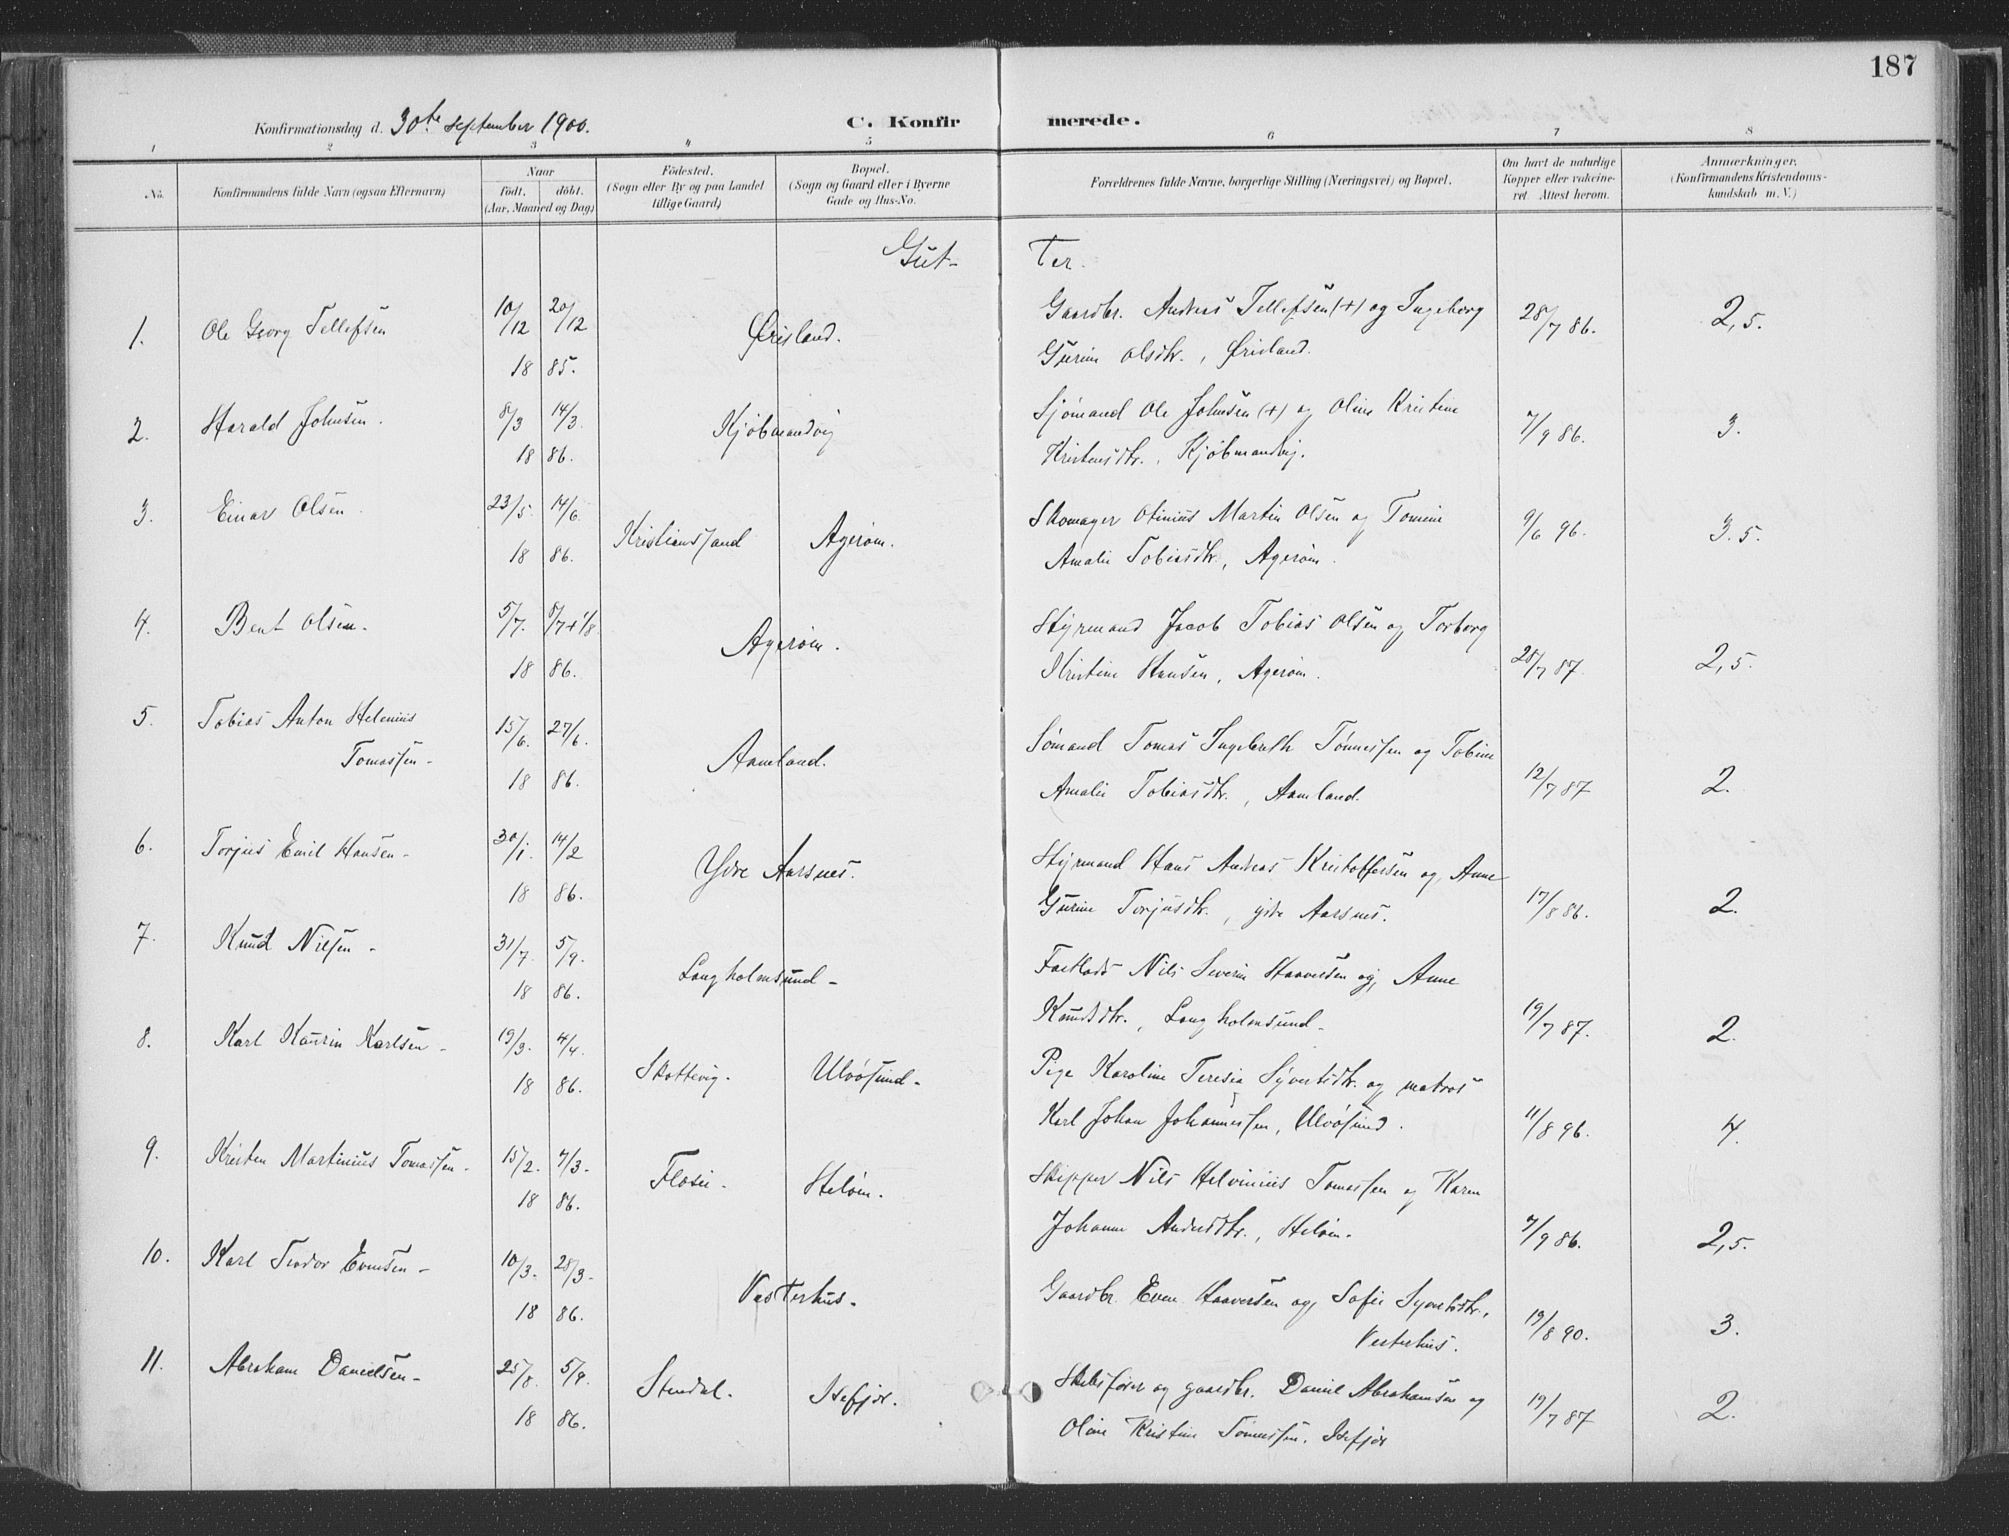 187
Konfirmationsdag d. 30te September 1900. C. Konfirmerede.
1 2 3 4 5 6 7 8
No. Konfirmandens fulde Navn (ogsaa Efternavn) Naar født, døbt. (Aar, Maaned og Dag) Fødested. (Sogn eller By og paa Landet tillige Gaard) Bopæl. (Sogn og Gaard eller i Byerne Gade og Hus-No. Forældrenes fulde Navne, borgerlige Stilling (Næringsvei) og Bopæl. Om havt de naturlige Kopper eller vakcineret. Attest herom. Anmærkninger. (Konfirmandens Kristendomskundskab m. V.)
Gut- ter.
1. Ole Georg Tellefsen 10/12 20/12 Øisland. Gaardbr. Andreas Tellefsen (+) og Ingeborg 28/7 86. 2,5.
18 85. Gurine Olsdtr., Øisland.
2. Harald Johnsen. 8/3 14/3 Kjøbmandvig Sjømand Ole Johnsen (+) og Oline Kristine 7/9 86. 3.
18 86. Kristensdtr., Kjøbmandvig.
3. Einar Olsen 23/5 14/6 Kristianssand Agerøm. Skomager Otinius Martin Olsen og Tomine 9/6 96. 3.5.
18 86. Amalie Tobiasdtr., Agerøm.
4. Bent Olsen. 5/7. 8/7+1/8 Agerøm. Styrmand Jacob Tobias Olsen og Torborg
18 86. Kristine Hansen, Agerøm. 28/7 87. 2,5.
5. Tobias Anton Helenius 15/6. 27/6. Aamland. Sømand Tomas Ingebreth Tønnessen og Tobine
Tomassen. 18 86. Amalie Tobiasdtr., Aamland. 12/7 87 2.
6. Torjus Emil Hansen. 30/1. 14/2 Ydre Aarsnes. Styrmand Hans Andreas Kristoffersen og Anne
18 86. Gurine Torjusdtr., ydre Aarsnes. 17/8 86. 2.
7. Knud Nilsen. 31/7 5/9. Langholmsund. Nils Severin Haaversen og Anne
18 86. Knudsdtr., Langholmsund. 19/7 87. 2.
8. Karl Kaurin Karlsen. 19/3. 4/4. Skottevig. Ulvøsund. Pige Karoline Teresia Syvertsdtr. og matros
18 86. Karl Johan Johannessen, Ulvøsund. 11/8 96. 4.
9. Kristen Martinius Tomassen. 15/2. 7/3. Flosie. Heløm. Skipper Nils Helvinius Tomassen og Karen
18 86. Johanne Andersdtr., Heløm. 7/9 86. 2,5.
10. Karl Teodor Evensen 10/3. 28/3. Vesterhus. Gaardbr. Even Haaversen og Sofie Syvertsdtr.,
18 86. Vesterhus. 19/8 90. 3.
11. Abraham Danielsen. 25/8. 5/9. Stendal. Isefjær. Skibsfører og gaardbr. Daniel Abrahamsen og
18 86. Oline Kristine Tønnessen. Isefjær 19/7 87 2.